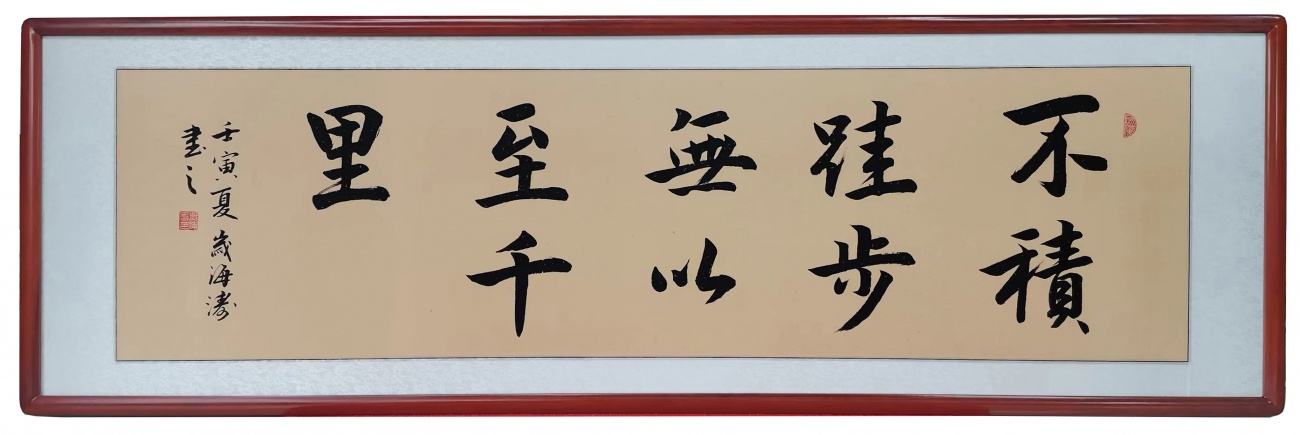 不積
跬步
無以
至千
里
壬寅夏歲海濤
書之